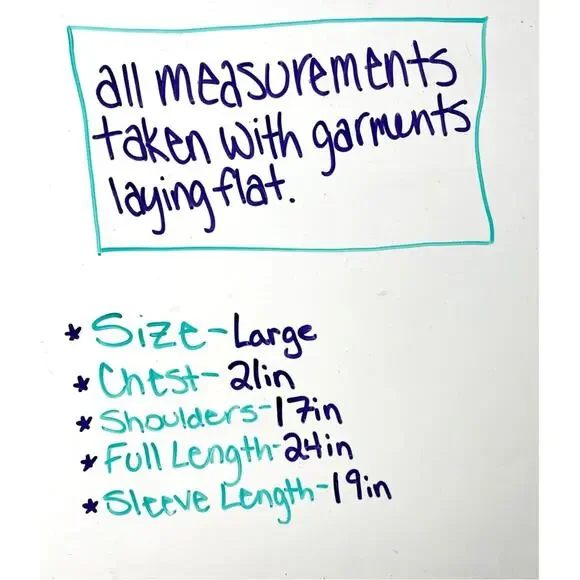 all measurements
taken with garments
laying flat.
* Size-Large
* Chest-21in
* Shoulders-17in
* Full Length-24in
* Sleeve Length-19in